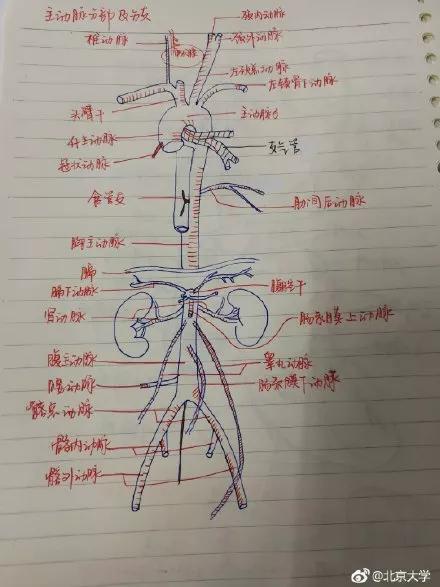 主动脉分部及分支
颈内动脉
椎动脉
颈外动脉
左颈总动脉
左锁骨下动脉
头臂干
主动脉弓
升主动脉
支气管
冠状动脉
食管支
肋间后动脉
胸主动脉
膈
膈下动脉
腹腔干
肾动脉
肠系膜上动脉
腹主动脉
睾丸动脉
腰动脉
肠系膜下动脉
髂总动脉
髂内动脉
髂外动脉
@北京大学